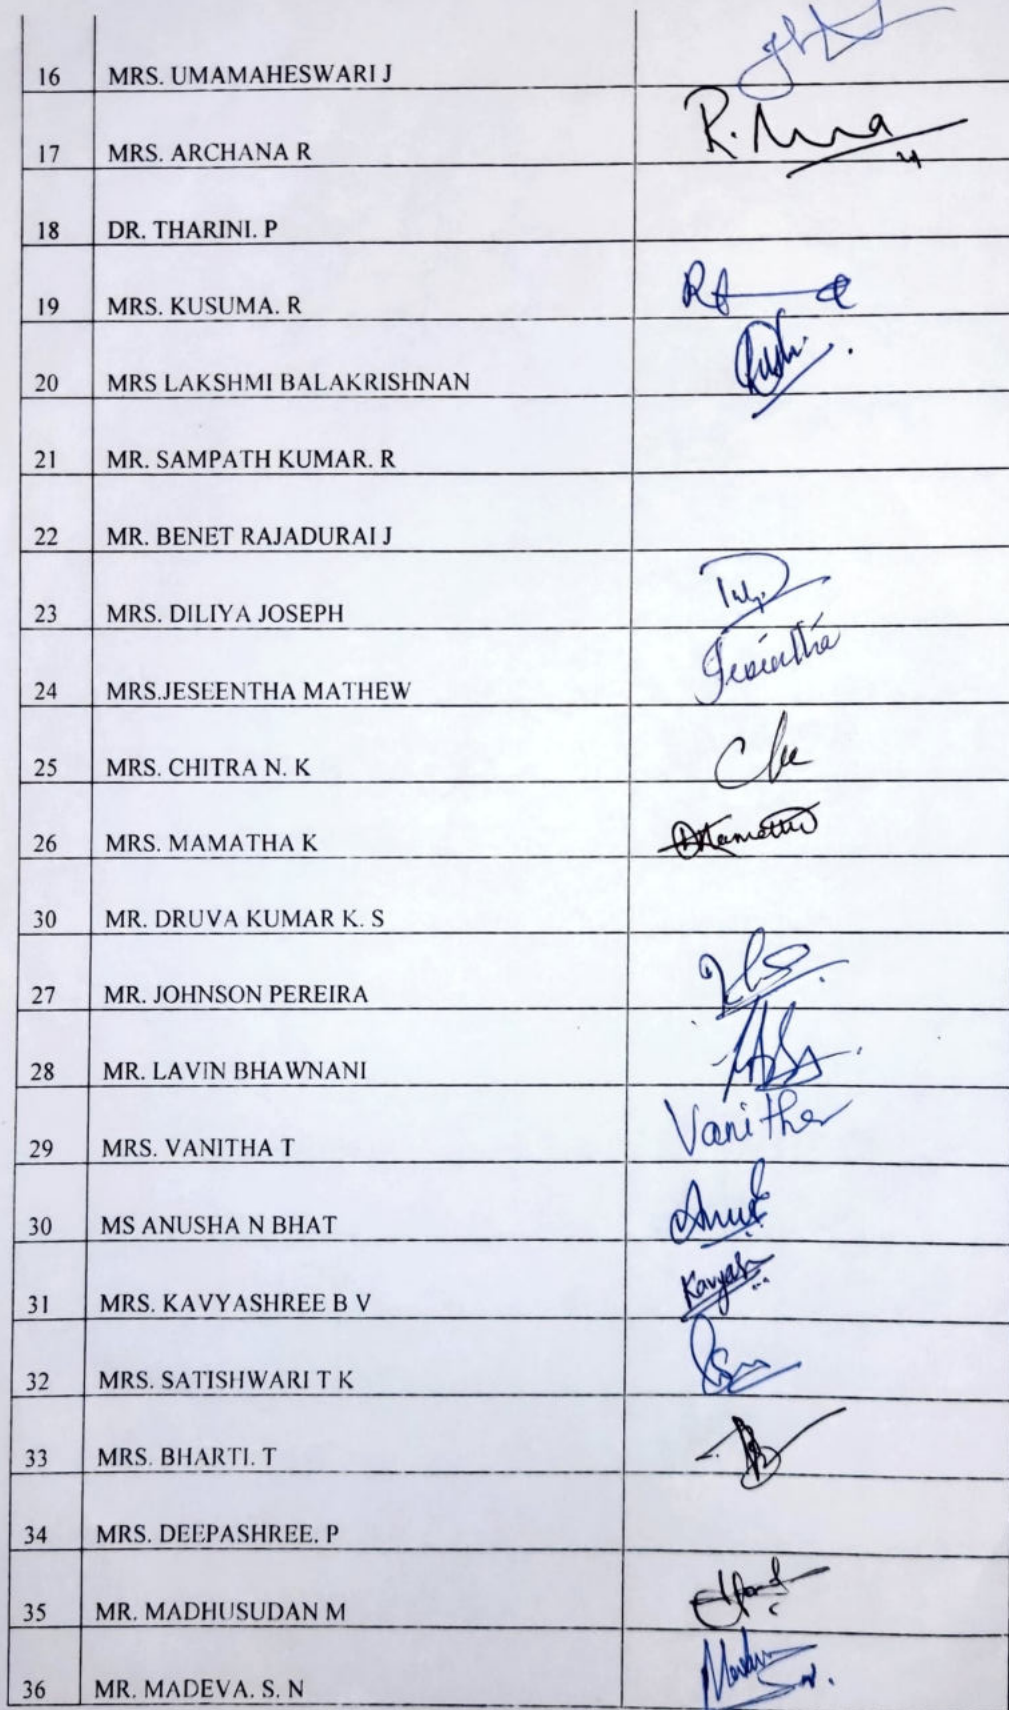 16 MRS. UMAMAHESWARI J
17 MRS. ARCHANA R
18 DR. THARINI. P
19 MRS. KUSUMA. R
20 MRS LAKSHMI BALAKRISHNAN
21 MR. SAMPATH KUMAR. R
22 MR. BENET RAJADURAI J
23 MRS. DILIYA JOSEPH
24 MRS.JESEENTHA MATHEW
25 MRS. CHITRA N. K
26 MRS. MAMATHA K
30 MR. DRUVA KUMAR K. S
27 MR. JOHNSON PEREIRA
28 MR. LAVIN BHAWNANI
29 MRS. VANITHA T Vanitha
30 MS ANUSHA N BHAT
31 MRS. KAVYASHREE B V
32 MRS. SATISHWARI T K
33 MRS. BHARTI. T
34 MRS. DEEPASHREE. P
35 MR. MADHUSUDAN M
36 MR. MADEVA. S. N